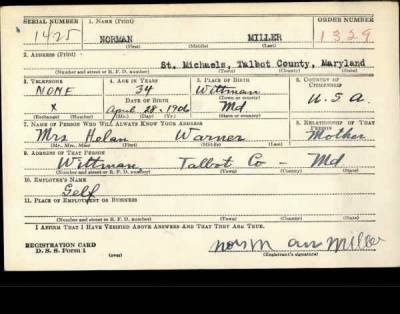 SERIAL NUMBER 1. NAME (Print) ORDER NUMBER
1425 NORMAN MILLER 1329
(First) (Middle) (Last)
2. ADDRESS (Print)
St. Michaels, Talbot County, Maryland
(Number and street or R. F. D. number) (Town) (County) (State)
3. TELEPHONE 4. AGE IN YEARS 5. PLACE OF BIRTH 6. COUNTRY OF CITIZENSHIP
NONE 34 Wittman
DATE OF BIRTH (Town or county) U.S.A.
X April 28-1906 Md
(Exchange) (Number) (Mo.) (Day) (Yr.) (State or country)
7. NAME OF PERSON WHO WILL ALWAYS KNOW YOUR ADDRESS 8. RELATIONSHIP OF THAT PERSON
Mrs Helan Warner Mother
(Mr., Mrs., Miss) (First) (Middle) (Last)
9. ADDRESS OF THAT PERSON
Wittman, Talbot Co - Md
(Number and street or R. F. D. number) (Town) (County) (State)
10. EMPLOYER'S NAME
Self
11. PLACE OF EMPLOYMENT OR BUSINESS
(Number and street or R. F. D. number) (Town) (County) (State)
I AFFIRM THAT I HAVE VERIFIED ABOVE ANSWERS AND THAT THEY ARE TRUE.
REGISTRATION CARD
D. S. S. Form 1 (over) (Registrant's signature)